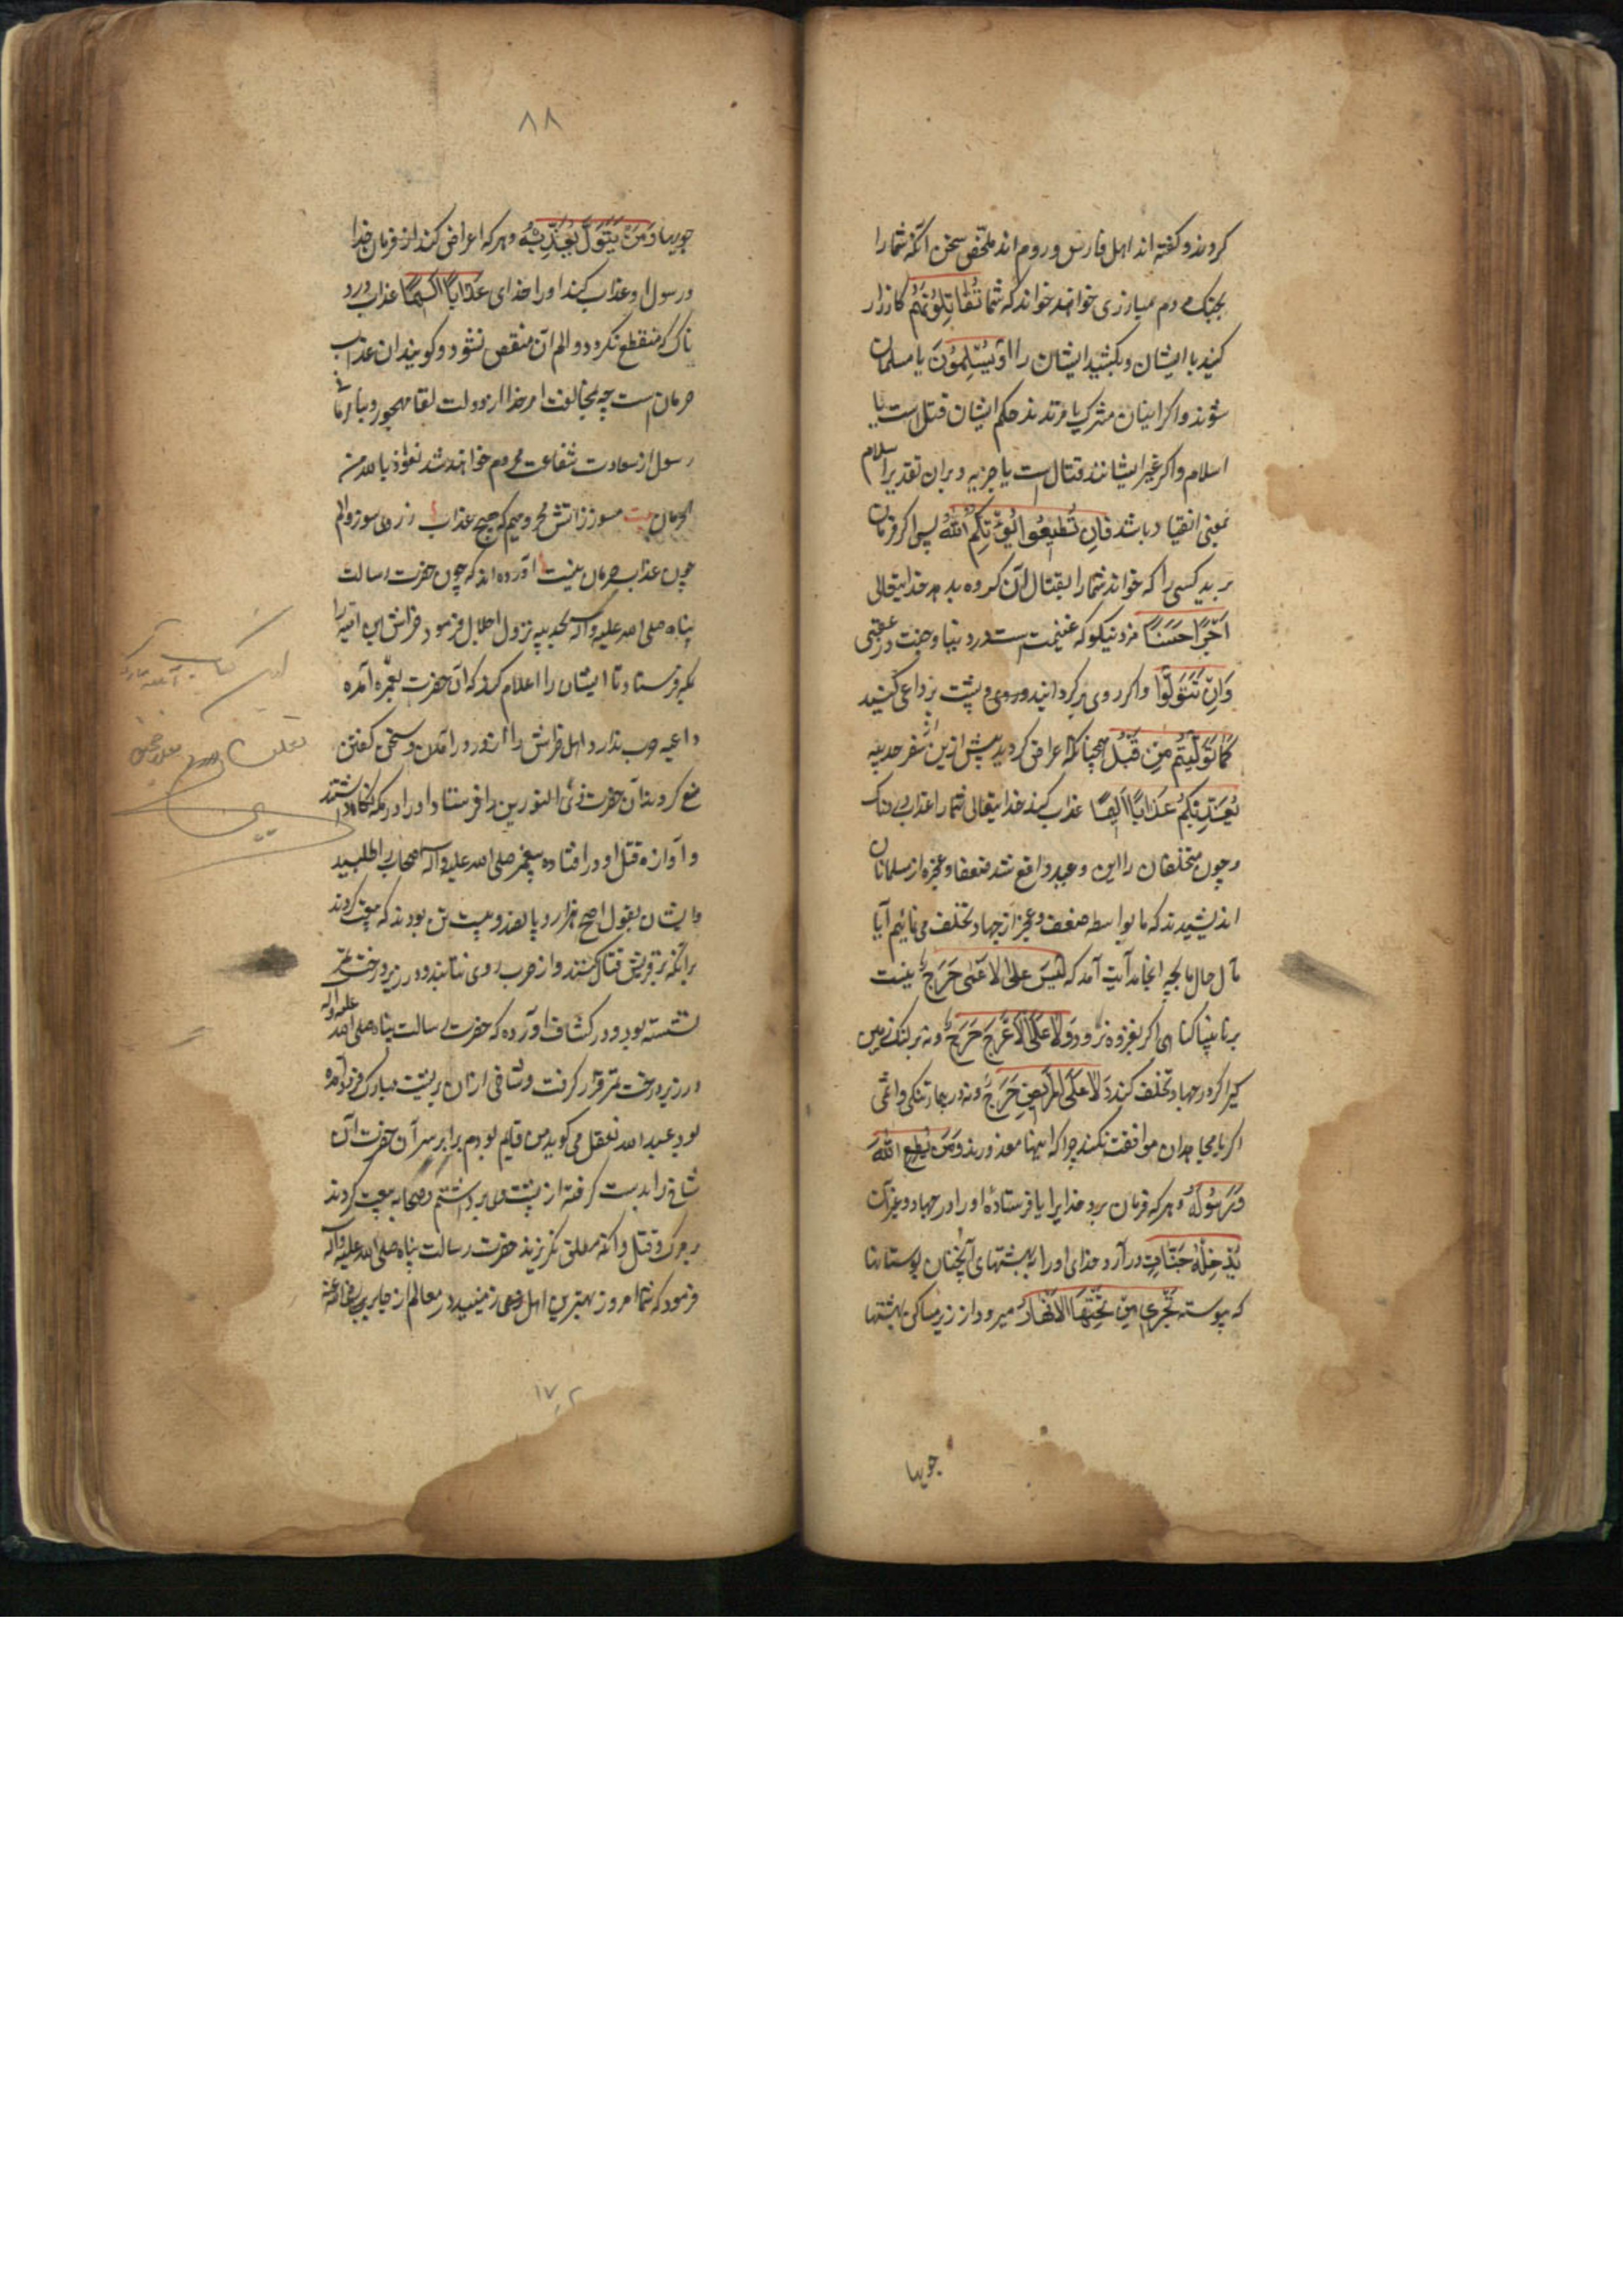 کردند و گفته اند اهل فارس و روم اند ملخص سخن آنکه شما را
بجنگ مردم مبارزی خواهند خواند که شما تُقَاتِلُونَهُمْ کارزار
کنید با ایشان و بکشید ایشان را اَوْ یُسْلِمُونَ یا مسلمان
شوند و اکر اینان مشرک یا مرتدند حکم ایشان قتل است یا
اسلام و اکر غیر ایشانند قتال است یا جزیه و بران تقدیر اسلام
بمعنی انقیاد باشد فَاِن تُطِیعُوا یُؤْتِکُمُ اللهُ پس اکر فرمان
برید کسی را که خواند شما را بقتال آن کروه بدهد خدایتعالی
اَجْرًا حَسَنًا مزد نیکو که غنیمت است در دنیا و جنت در عقبی
وَاِنْ تَتَوَلَّوْا و اکر روی برکردانید و پشت بر داعی کنید
کَمَا تَوَلَّیْتُمْ مِنْ قَبْلُ همچنانکه اعراض کردید پیش ازین از سفر حدیبیه
یُعَذِّبْکُمْ عَذَابًا اَلِیمًا عذاب کند خدایتعالی شما را عذابی دردناک
و چون متخلفان را این وعید واقع شد ضعفا و عجزه از مسلمانان
اندیشیدند که ما بواسطه ضعف و عجز از جهاد تخلف می نمائیم آیا
مآل حال ما بچه انجامد آیت آمد که لَیْسَ عَلَی الْاَعْمٰی حَرَجٌ نیست
بر نابینا کناهی اکر بغزوه نرود وَلَا عَلَی الْاَعْرَجِ حَرَجٌ و نه بر لنک زمین
کیر اکر در جهاد تخلف کند وَلَا عَلَی الْمَرِیضِ حَرَجٌ و نه در بیمار تنکی و اثمی
اکر با مجاهدان موافقت نکند چرا که اینها معذورند وَمَنْ یُطِعِ اللهَ
وَرَسُولَهُ و هر که فرمان برد خدایرا یا فرستادهٔ او را در جهاد و غیر آن
یُدْخِلْهُ جَنَّاتٍ درآرد خدای او را به بهشتهای آنچنان بوستانها
که پیوسته تَجْرِی مِنْ تَحْتِهَا الْاَنْهَارُ میرود از زیر مساکن بهشتها
جویها
۸۸
جویها وَمَنْ یَتَوَلَّ یُعَذِّبْهُ و هر که اعراض کند از فرمان خدا
و رسول او عذاب کند او را خدای عَذَابًا اَلِیمًا عذاب درد
ناک که منقطع نکردد و الم آن منقص نشود و کویند آن عذاب
حرمان است چه بمخالفت امر خدا از دولت لقا مهجور و
رسول از سعادت شفاعت محروم خواهند شد نعوذ بالله من
الحرمان بیت مسوز زآتش محرومیم که هیچ عذاب ز روی سوز و الم
چون عذاب حرمان نیست آورده اند که چون حضرت رسالت
پناه صلی الله علیه و آله بحدیبیه نزول اجلال فرمود خراش بن امیه را
بمکه فرستاد تا ایشان را اعلام کند که آن حضرت بعمره آمده
داعیه حرب ندارد و اهل از ورود را آمدن و سخن کفتن
منع کردند آن حضرت ذی النورین را فرستاد او را در مکه نکاه داشتند
و آوازه قتل او در افتاده پیغمبر صلی الله علیه و آله اصحاب را طلبید
و ایشان بقول اصح هزار و پانصد و بیست تن بودند که بیعت کردند
برآنکه با قریش قتال کنند و از حرب روی نتابند و در زیر درخت
نشسته بود و در کشاف آورده که حضرت رسالت پناه صلی الله علیه و آله
در زیر درخت قرار کرفت و شاخی از آن بر پشت مبارک فرود آمده
بود عبدالله مغفل می کوید من قایم بودم برابر سر آن حضرت آن
شاخ را بدست کرفته از پشت وی برداشتم و صحابه بیعت کردند
بر مرک و قتل و آنکه مطلق نکریزند حضرت رسالت پناه صلی الله علیه و آله
فرمود که شما امروز بهترین اهل روی زمینید در معالم از جابر رضی الله عنه
این کتاب
۱۷۲